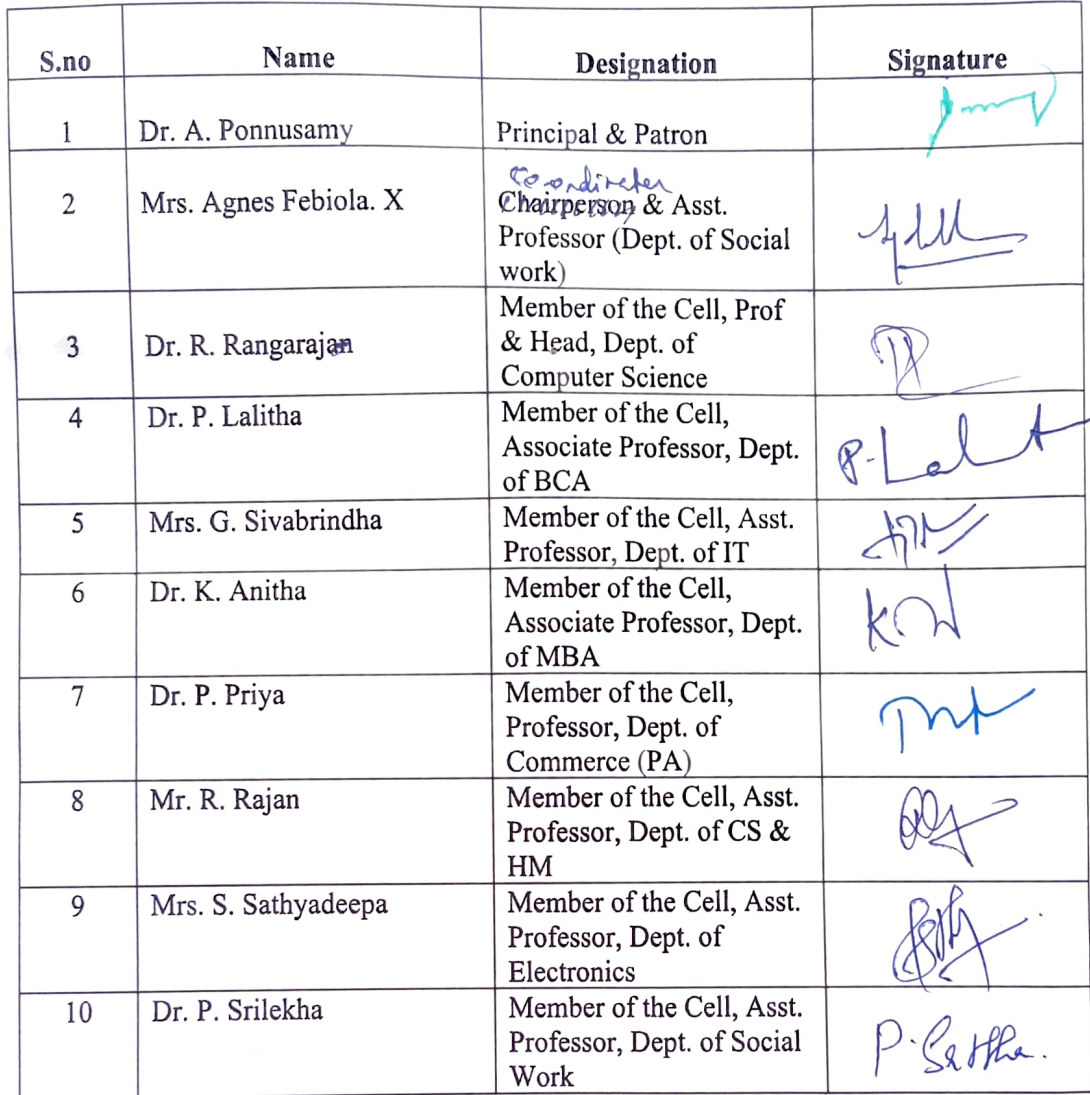 S.no Name Designation Signature
1 Dr. A. Ponnusamy Principal & Patron
Coordinator
2 Mrs. Agnes Febiola. X Chairperson & Asst.
Professor (Dept. of Social
work)
Member of the Cell, Prof
3 Dr. R. Rangarajan & Head, Dept. of
Computer Science
4 Dr. P. Lalitha Member of the Cell,
Associate Professor, Dept.
of BCA
5 Mrs. G. Sivabrindha Member of the Cell, Asst.
Professor, Dept. of IT
6 Dr. K. Anitha Member of the Cell,
Associate Professor, Dept.
of MBA
7 Dr. P. Priya Member of the Cell,
Professor, Dept. of
Commerce (PA)
8 Mr. R. Rajan Member of the Cell, Asst.
Professor, Dept. of CS &
HM
9 Mrs. S. Sathyadeepa Member of the Cell, Asst.
Professor, Dept. of
Electronics
10 Dr. P. Srilekha Member of the Cell, Asst.
Professor, Dept. of Social
Work